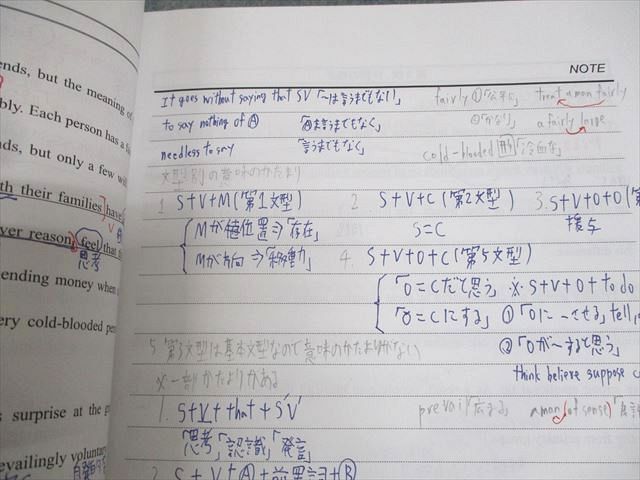 ends, but the meaning of
bly. Each person has a
nds, but only a few wil
th their families have
ver reason, feel that
思考
ending money when
ery cold-blooded pe
s surprise at the g
evailingly voluntar
NOTE
It goes without saying that SV 「〜は言うまでもない」
fairly ①「公平に」 treat a man fairly
to say nothing of Ⓐ 「Ⓐは言うまでもなく」
②「かなり」 a fairly large
needless to say 「言うまでもなく」
cold-blooded 形「冷血な」
文型別の意味のかたより
1 S+V+M (第1文型)
Mが位置⇒「存在」
Mが方向⇒「移動」
2 S+V+C (第2文型)
S=C
3. S+V+O+O (第
授与
4. S+V+O+C (第5文型)
「O=Cだと思う」 ※ S+V+O+to do
「O=Cにする」 ① 「Oに〜させる」 tell,
② 「Oが〜すると思う」
think believe suppose c
5 第3文型は基本文型なので意味のかたよりがない
※一部かたよりがある
1. S+V+that+S'V'
「思考」「認識」「発言」
prevail 広まる a man (of sense)
2 S+V+Ⓐ+前置詞+Ⓑ